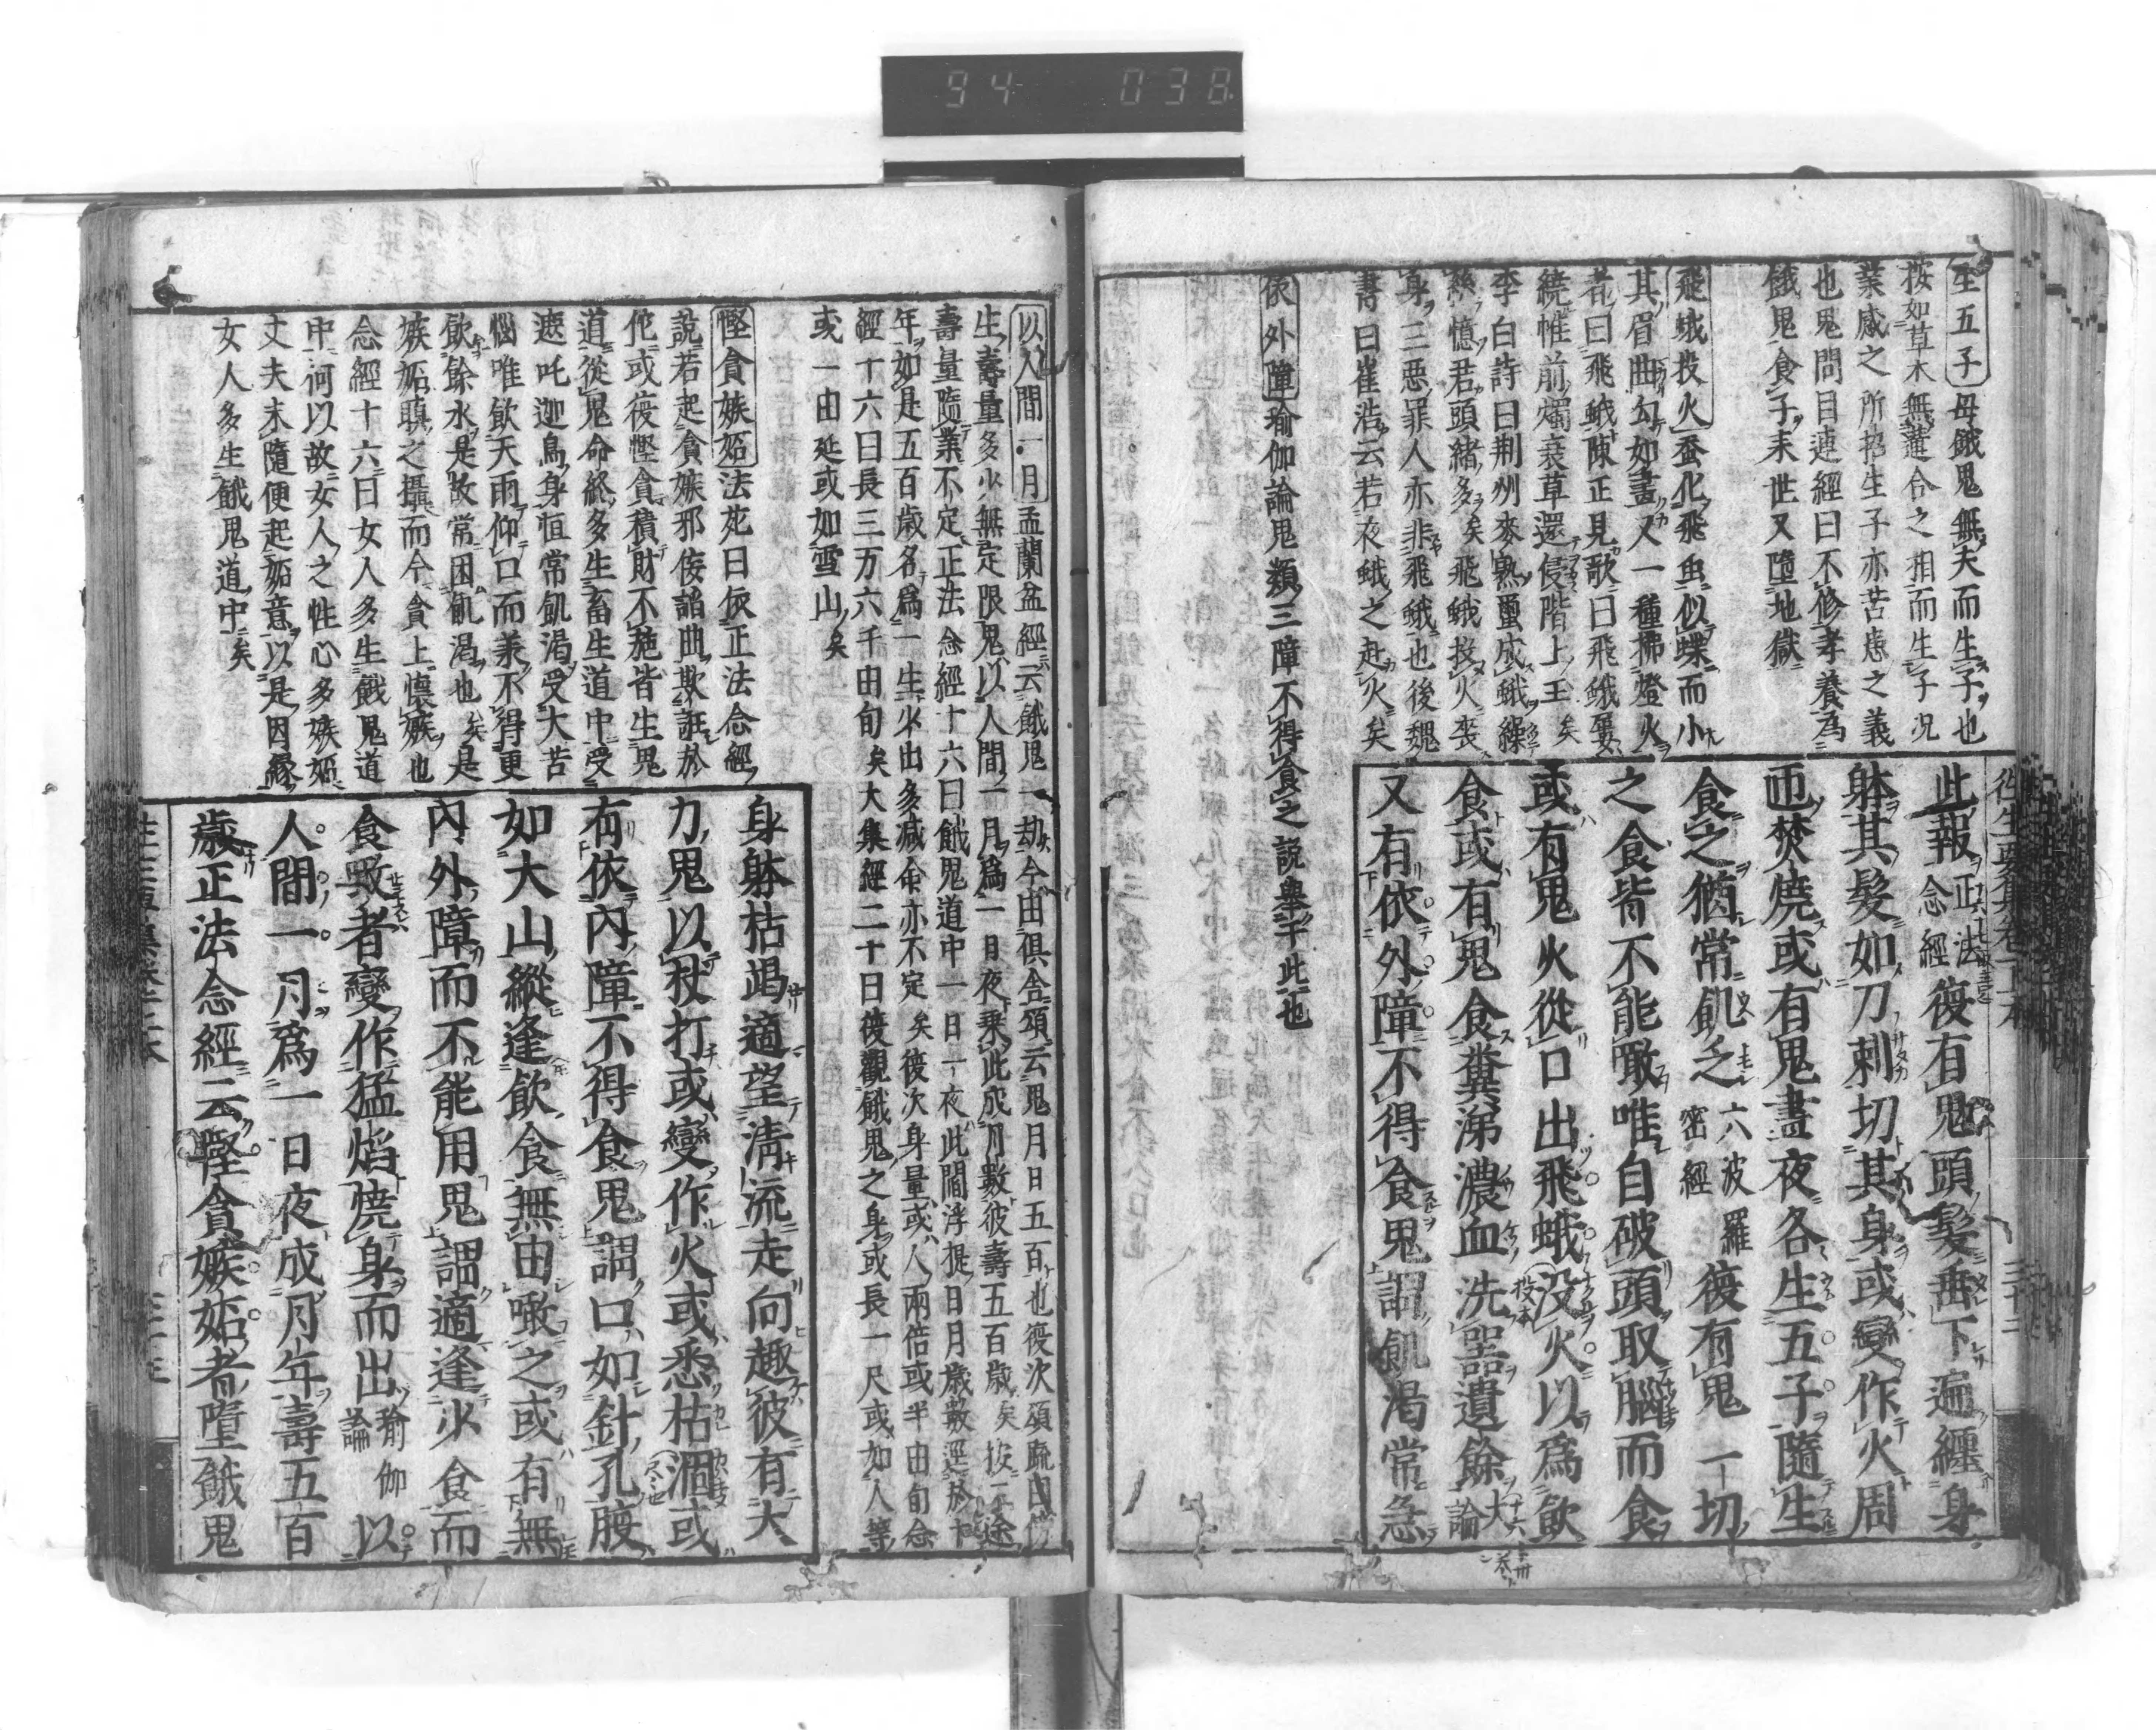 94 038
生五子母餓鬼無夫而生子也
按如草木無蓮合之相而生子況
業感之所招生子亦苦患之義
也鬼問目連經曰不修孝養為
餓鬼食子未世又墮地獄
飛蛾投火蚕化飛虫似蝶而小
其眉曲勾如畫又一種拂燈火
者曰飛蛾陳正見歌曰飛蛾
繞帷前燭衰草還侵階上王矣
李白詩曰荆州麥熟繭成蛾繰
絲憶君頭緒多矣飛蛾投火喪
身三惡罪人亦非飛蛾也後魏
書曰崔浩云若夜蛾之赴火矣
依外障瑜伽論鬼類三障不得食之說舉于此也
此報正法念經復有鬼頭髮垂下遍纒身
躰其髮如刀刺切其身或變作火周
迊焚燒或有鬼晝夜各生五子隨生
食之猶常飢乏六波羅密經復有鬼一切
之食皆不能噉唯自破頭取腦而食
或有鬼火從口出飛蛾没火以爲飲
食或有鬼食糞涕濃血洗器遺餘大論
又有依外障不得食鬼謂飢渴常急
以人間一月盂蘭盆經云餓鬼一劫今由俱舍頌云鬼月日五百也復次頌疏曰傍
生壽量多少無定限鬼以人間一月爲一日夜乘此成月數彼壽五百歲矣按二途
壽量隨業不定正法念經十六曰餓鬼道中一日一夜此閻浮提日月歲數逕於十
年如是五百歲名爲一生少出多減命亦不定矣復次身量或人兩倍或半由旬念
經十六曰長三万六千由旬矣大集經二十曰復觀餓鬼之身或長一尺或如人等
或一由延或如雪山矣
慳貪嫉妬法苑曰依正法念經
説若起貪嫉邪佞諂曲欺誑於
佗或復慳貪積財不施皆生鬼
道從鬼命終多生畜生道中受
遮吒迦鳥身恒常飢渴受大苦
惱唯飲天雨仰口而義不得更
飲餘水是故常困飢渴也矣是
嫉妬瞋之攝而今貪上懷嫉也
念經十六曰女人多生餓鬼道
中何以故女人之性心多嫉妬
丈夫未隨便起妬意以是因縁
女人多生餓鬼道中矣
身躰枯竭適望淸流走向趣彼有大
力鬼以杖打或變作火或悉枯涸或
有依內障不得食鬼謂口如針孔腹
如大山縱逢飲食無由噉之或有無
內外障而不能用鬼謂適逢少食而
食噉者變作猛焰燒身而出瑜伽論以
人間一月爲一日夜成月年壽五百
歲正法念經云慳貪嫉妬者墮餓鬼